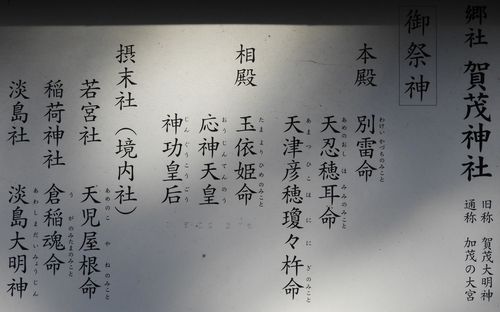 郷社 賀茂神社
旧称 賀茂大明神
通称 加茂の大宮
御祭神
本殿 別雷命
わけいかづちのみこと
天忍穂耳命
あめのおしほみみのみこと
天津彦穂瓊々杵命
あまつひこほににぎのみこと
相殿 玉依姫命
たまよりひめのみこと
応神天皇
おうじんてんのう
神功皇后
じんぐうこうごう
摂末社（境内社）
若宮社 天児屋根命
あめのこやねのみこと
稲荷神社 倉稲魂命
うがのみたまのみこと
淡島社 淡島大明神
あわしまだいみょうじん